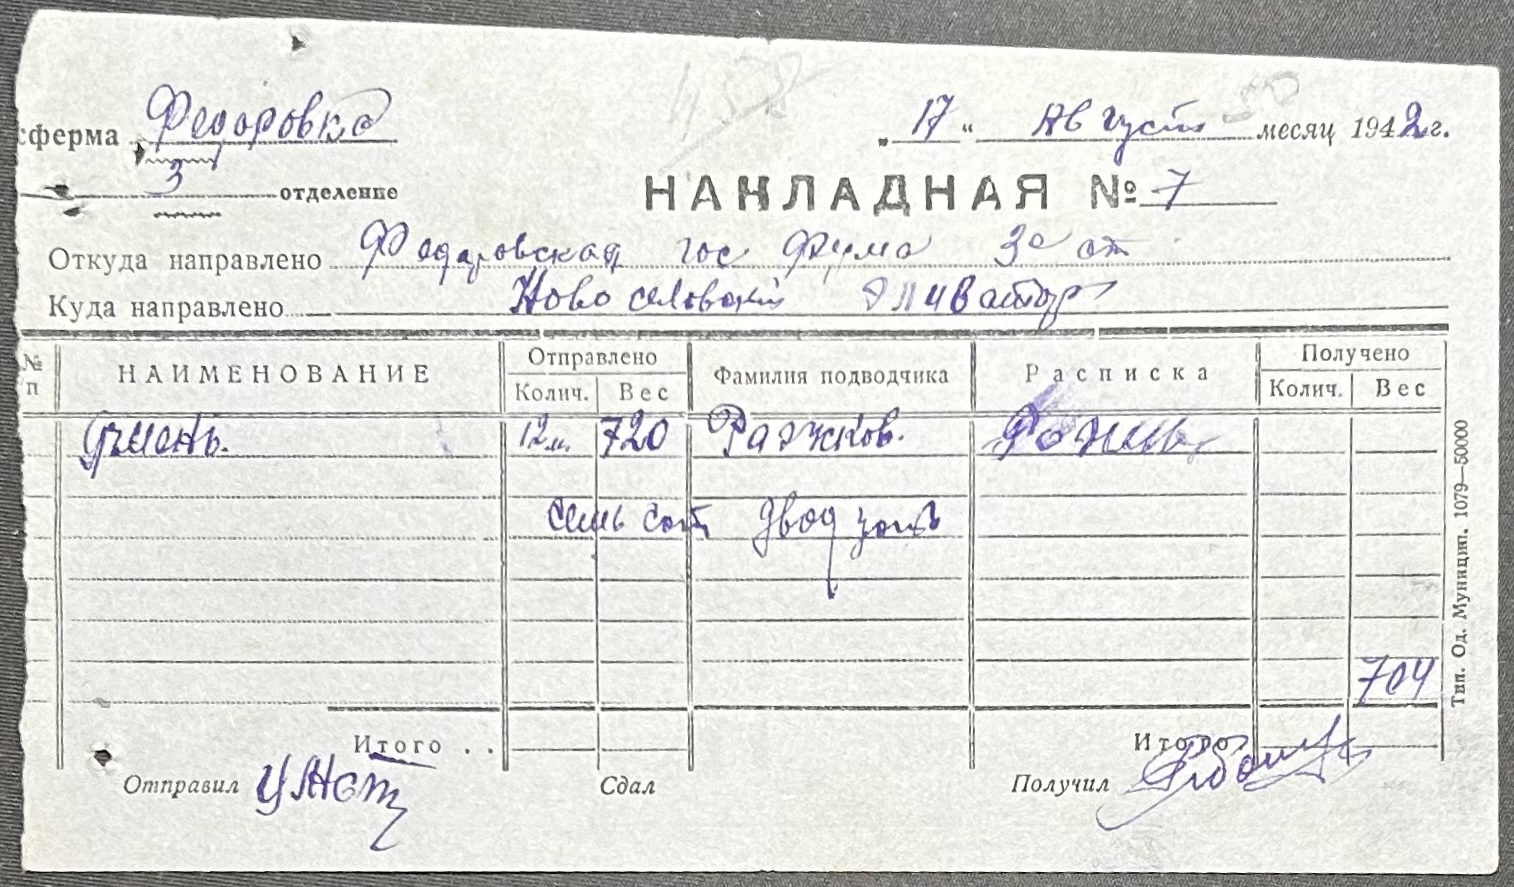 сферма Федоровка „17“ Августа месяц 1942 г.
3 отделение
НАКЛАДНАЯ № 7
Откуда направлено Федаровская гос ферма 3е от
Куда направлено Ново селовский Эливатор
№ п НАИМЕНОВАНИЕ Отправлено Колич. Вес Фамилия подводчика Расписка Получено Колич. Вес
Ячмень. 12 м. 720 Ражков.
семь сот двадцать
704
Итого . . Итого
Отправил Сдал Получил
Тип. Од. Муницип. 1079—50000